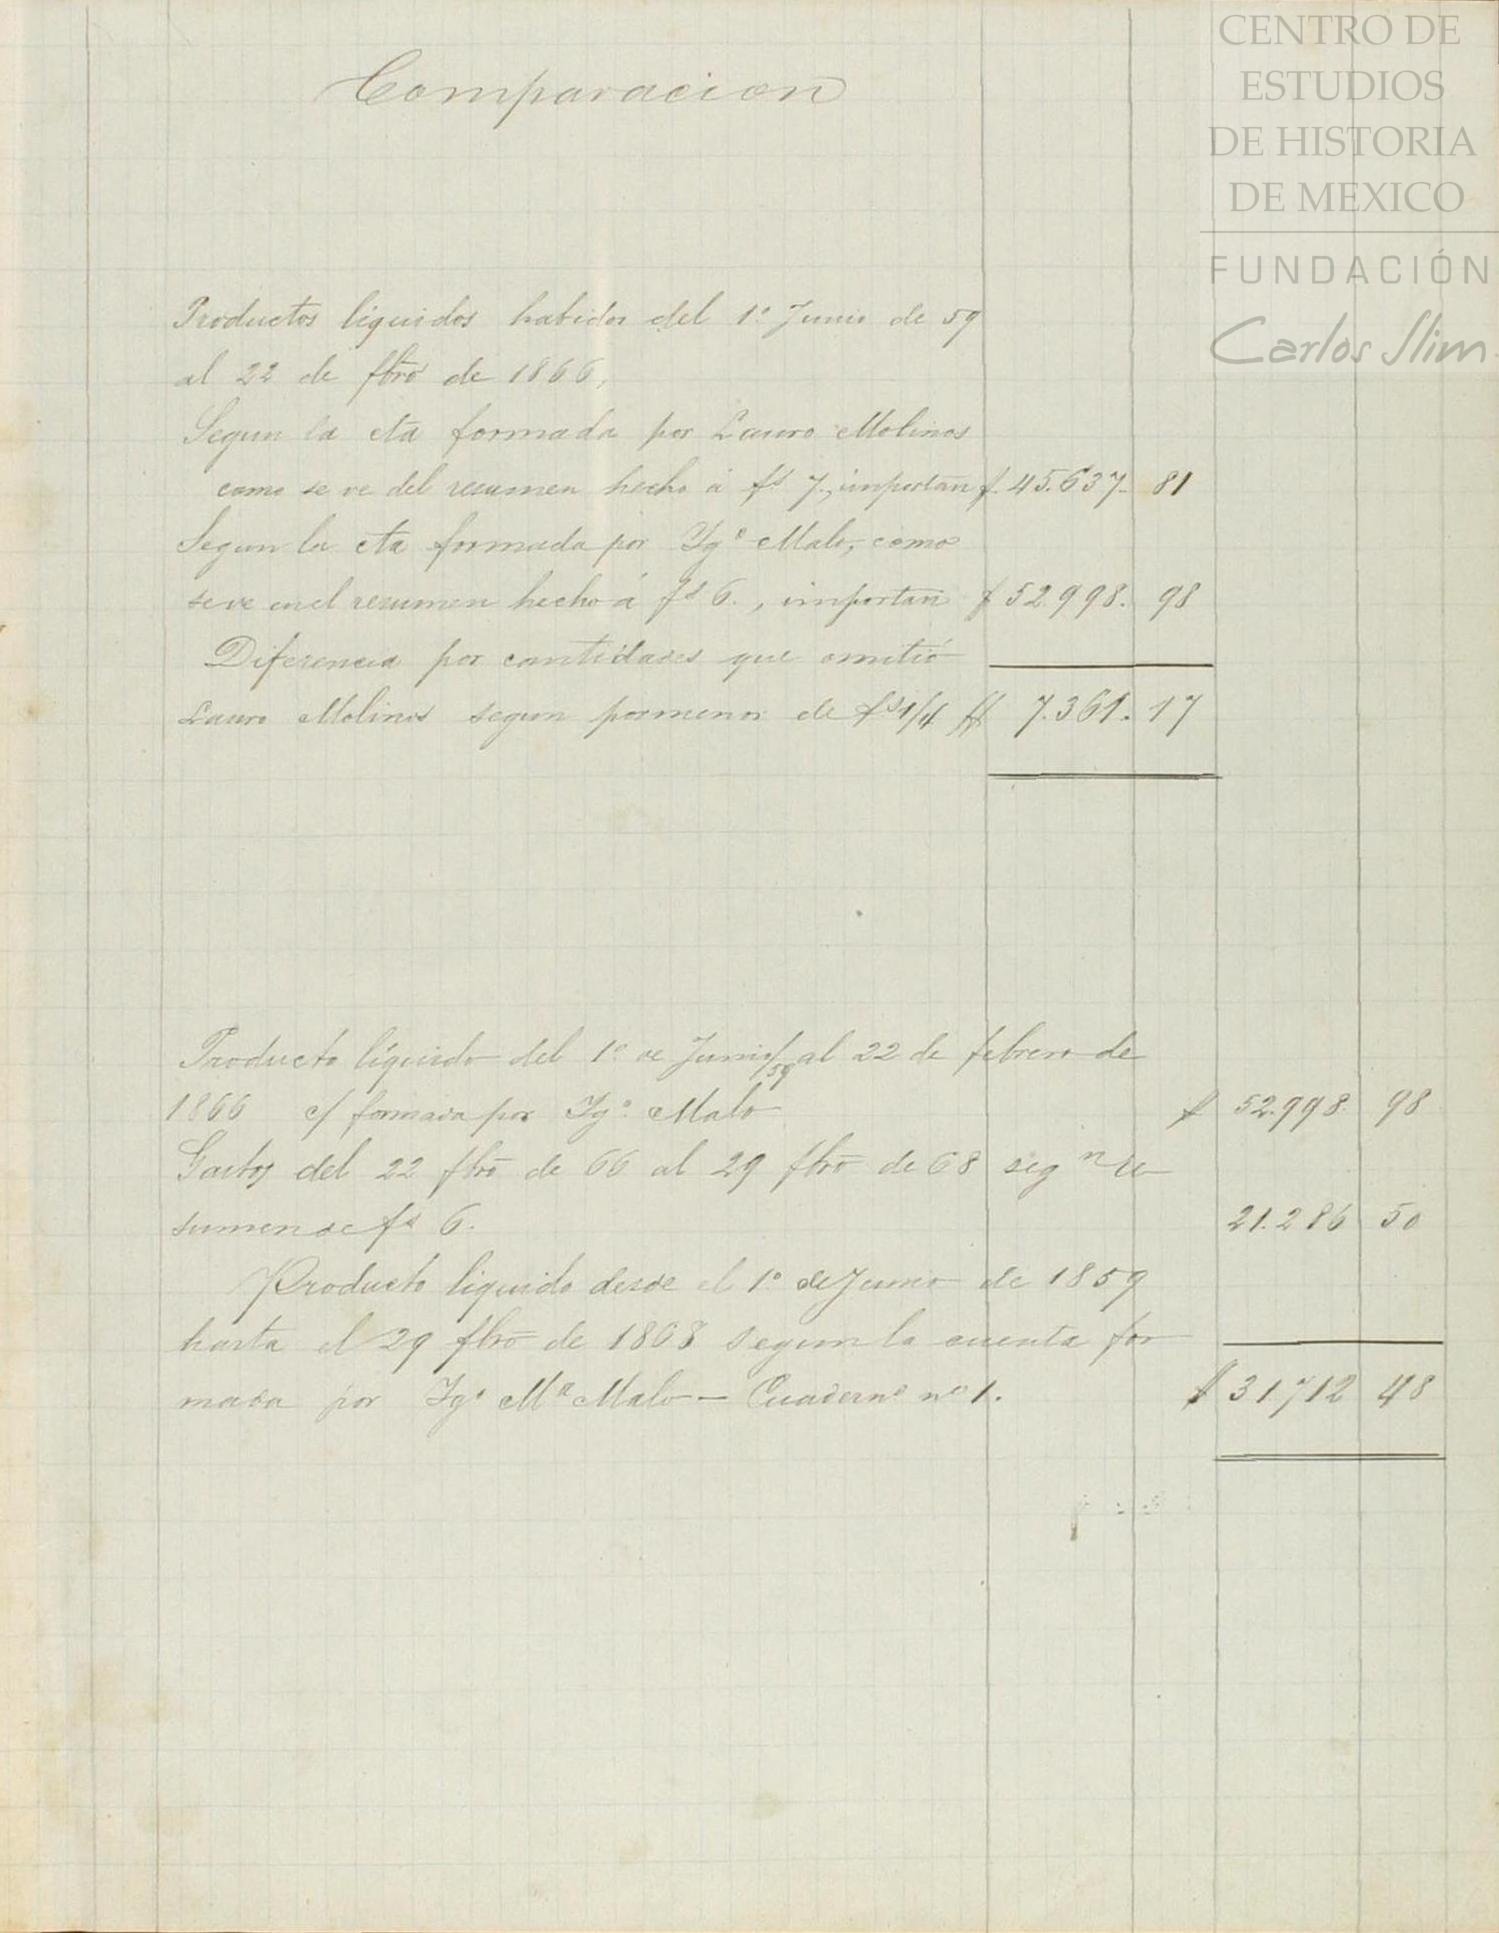 CENTRO DE
ESTUDIOS
DE HISTORIA
DE MEXICO
FUNDACIÓN
Carlos Slim
Comparacion
Productos líquidos habidos del 1º Junio de 59
al 22 de fbrō de 1866,
Segun la cta formada por Lauro Molinos
como se ve del resumen hecho á fs 7., importan $. 45.637. 81
Segun la cta formada por Ygº Malo, como
se ve en el resumen hecho á fs 6., importan $ 52.998. 98
Diferencia por cantidades que omitió
Lauro Molinos segun pormenor de fs 1/4 $ 7.361. 17
Producto líquido del 1º de Junio/59 al 22 de febrero de
1866 c/ formada por Ygº Malo $ 52.998. 98
Gastos del 22 fbrō de 66 al 29 fbrō de 68 segn re
sumen de fs 6. 21.286 50
Producto liquido desde el 1º de Junio de 1859
hasta el 29 fbrō de 1868 segun la cuenta for
mada por Ygº Mª Malo — Cuadernº nº 1. $ 31.712 48